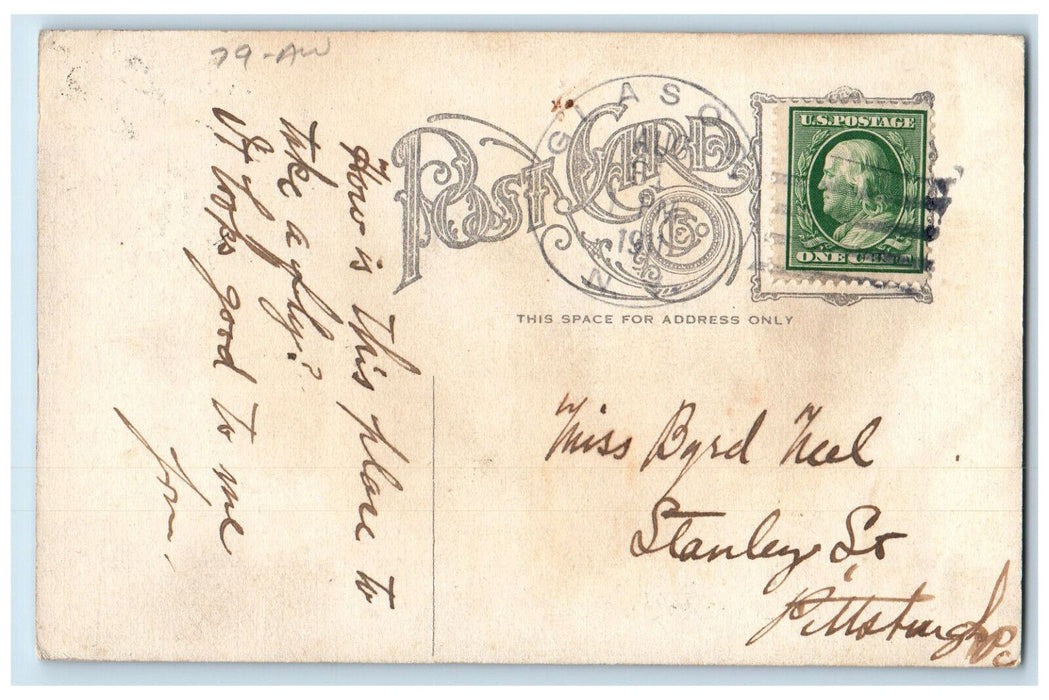 79-AW
POST CARD
GLASGO
AUG
PM
191
N
U.S. POSTAGE
ONE CENT
THIS SPACE FOR ADDRESS ONLY
How is this place to
take a fly?
It looks good to me
Miss Byrd Neel
Stanley St
Pittsburgh